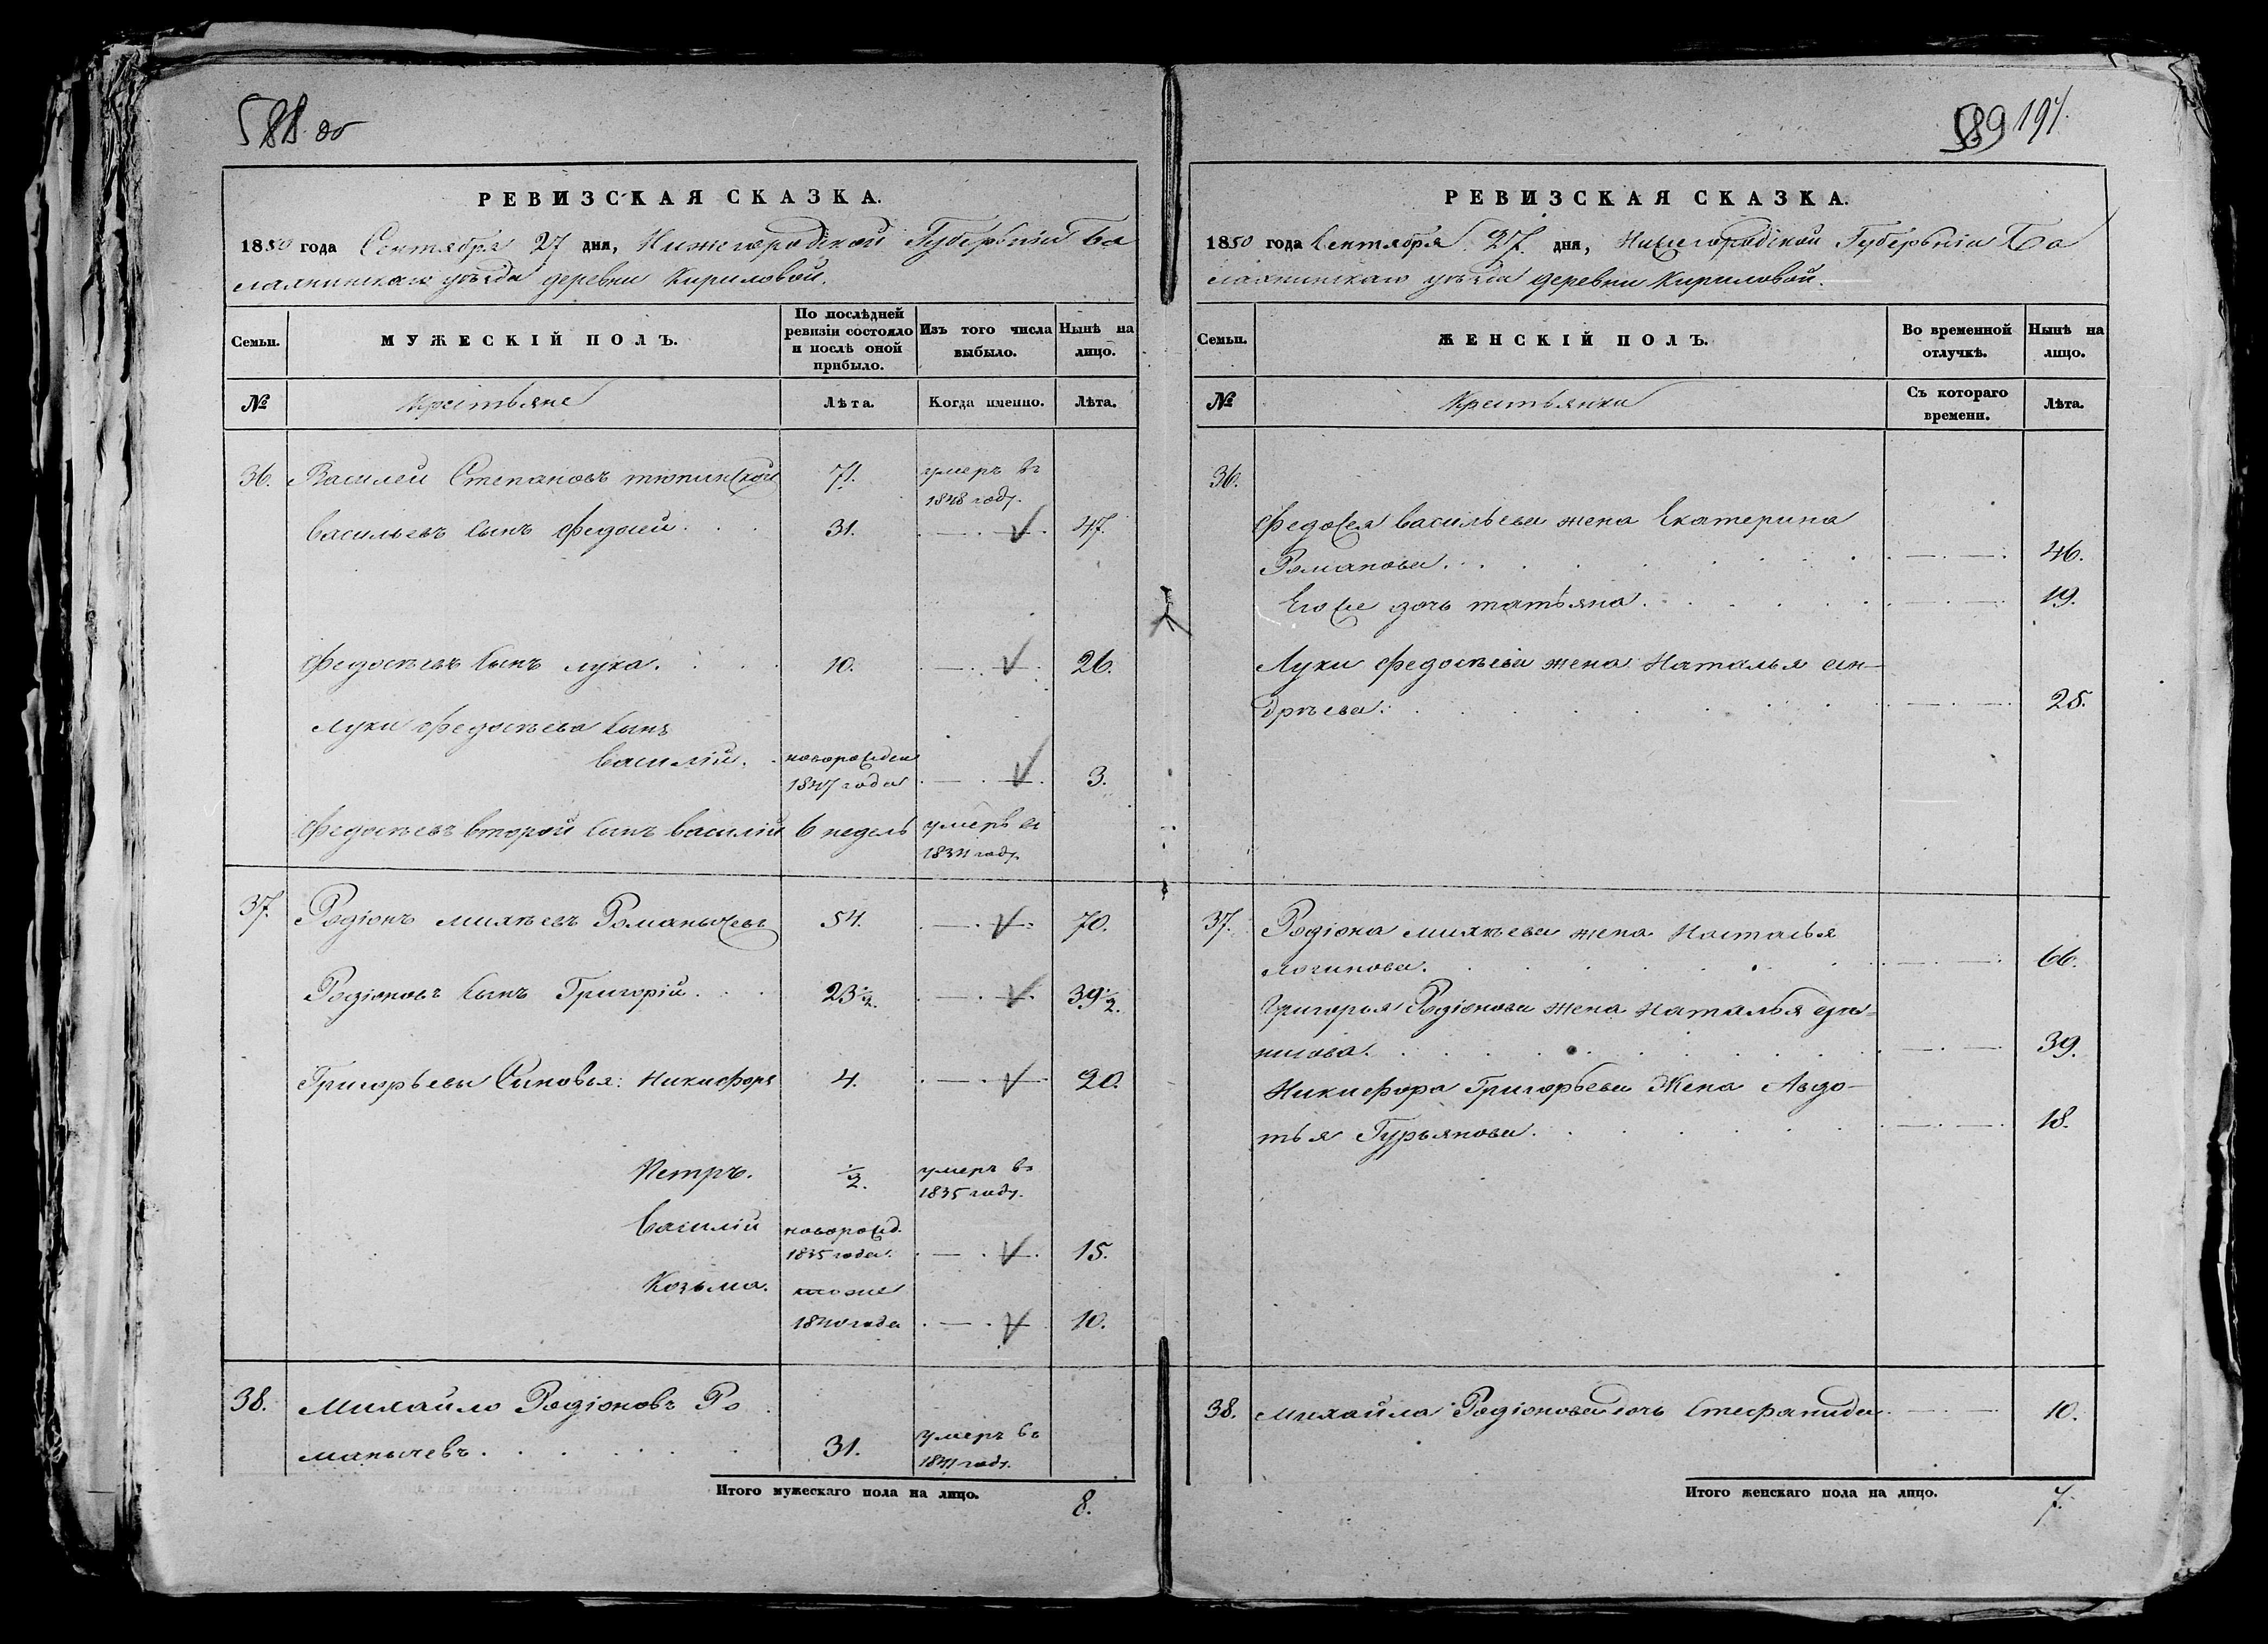 588 об
РЕВИЗСКАЯ СКАЗКА.
1850 года Сентября 27 дня, Нижегородской Губерьніи Ба
лахнинскаго уѣзда деревни Кириловой.
Семьи.
МУЖЕСКІЙ ПОЛЪ.
По послѣдней ревизіи состояло и послѣ оной прибыло.
Изъ того числа выбыло.
Нынѣ на лицо.
№
Крестьяне
Лѣта.
Когда именно.
Лѣта.
36. Василей Степановъ тюпинской 71. умеръ въ
1848 году.
Васильевъ сынъ Федосей 31. 47.
Федосѣевъ сынъ Лука. 10. 26.
Луки Федосѣева сынъ
Василій. новорожден
1847 года 3.
Федосѣевъ второй сынъ Василій 6 недель умеръ въ
1834 году.
37. Родіонъ Михѣевъ Романычевъ 54. 70.
Родіоновъ сынъ Григорій 23 1/2. 39 1/2.
Григорьевы Сыновья: Никифоръ 4. 20.
Петръ. 1/2. умеръ въ
1835 году.
Василій новорожд.
1835 года. 15.
Козьма. тоже
1840 года 10.
38. Михайло Родіоновъ Ро
манычевъ 31. умеръ въ
1841 году.
Итого мужескаго пола на лицо. 8.
589 197.
РЕВИЗСКАЯ СКАЗКА.
1850 года Сентября 27. дня, Нижегородской Губерьніи Ба
лахнинскаго уѣзда деревни Кириловой.
Семьи.
ЖЕНСКІЙ ПОЛЪ.
Во временной отлучкѣ.
Нынѣ на лицо.
№
Крестьянки
Съ котораго времени.
Лѣта.
36.
Федосея Васильева жена Екатерина
Романова. 46.
Его же дочь татьяна. 19.
Луки Федосѣева жена Наталья Ан-
дрѣева. 25.
37. Родіона Михѣева жена Наталья
Логинова. 66.
Григорья Родіонова жена Наталья
39.
Никифора Григорьева Жена Авдо-
тья Гурьянова. 18.
38. Михайла Родіонова дочь Стефанида 10.
Итого женскаго пола на лицо. 7.